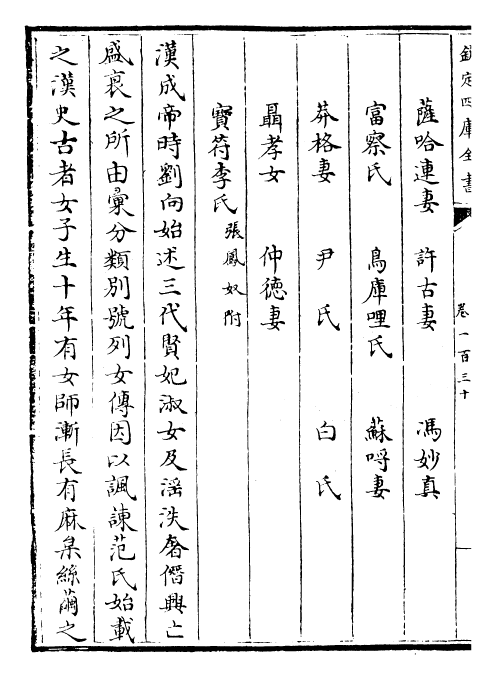 欽定四庫全書
卷一百三十
薩哈連妻 許古妻 馮妙真
富察氏 烏庫哩氏 蘇哷妻
莽格妻 尹氏 白氏
聶孝女 仲徳妻
寳符李氏 張鳳奴附
漢成帝時劉向始述三代賢妃淑女及滛泆奢僭興亡
盛衰之所由彚分類別號列女傳因以諷諫范氏始載
之漢史古者女子生十年有女師漸長有麻枲絲繭之